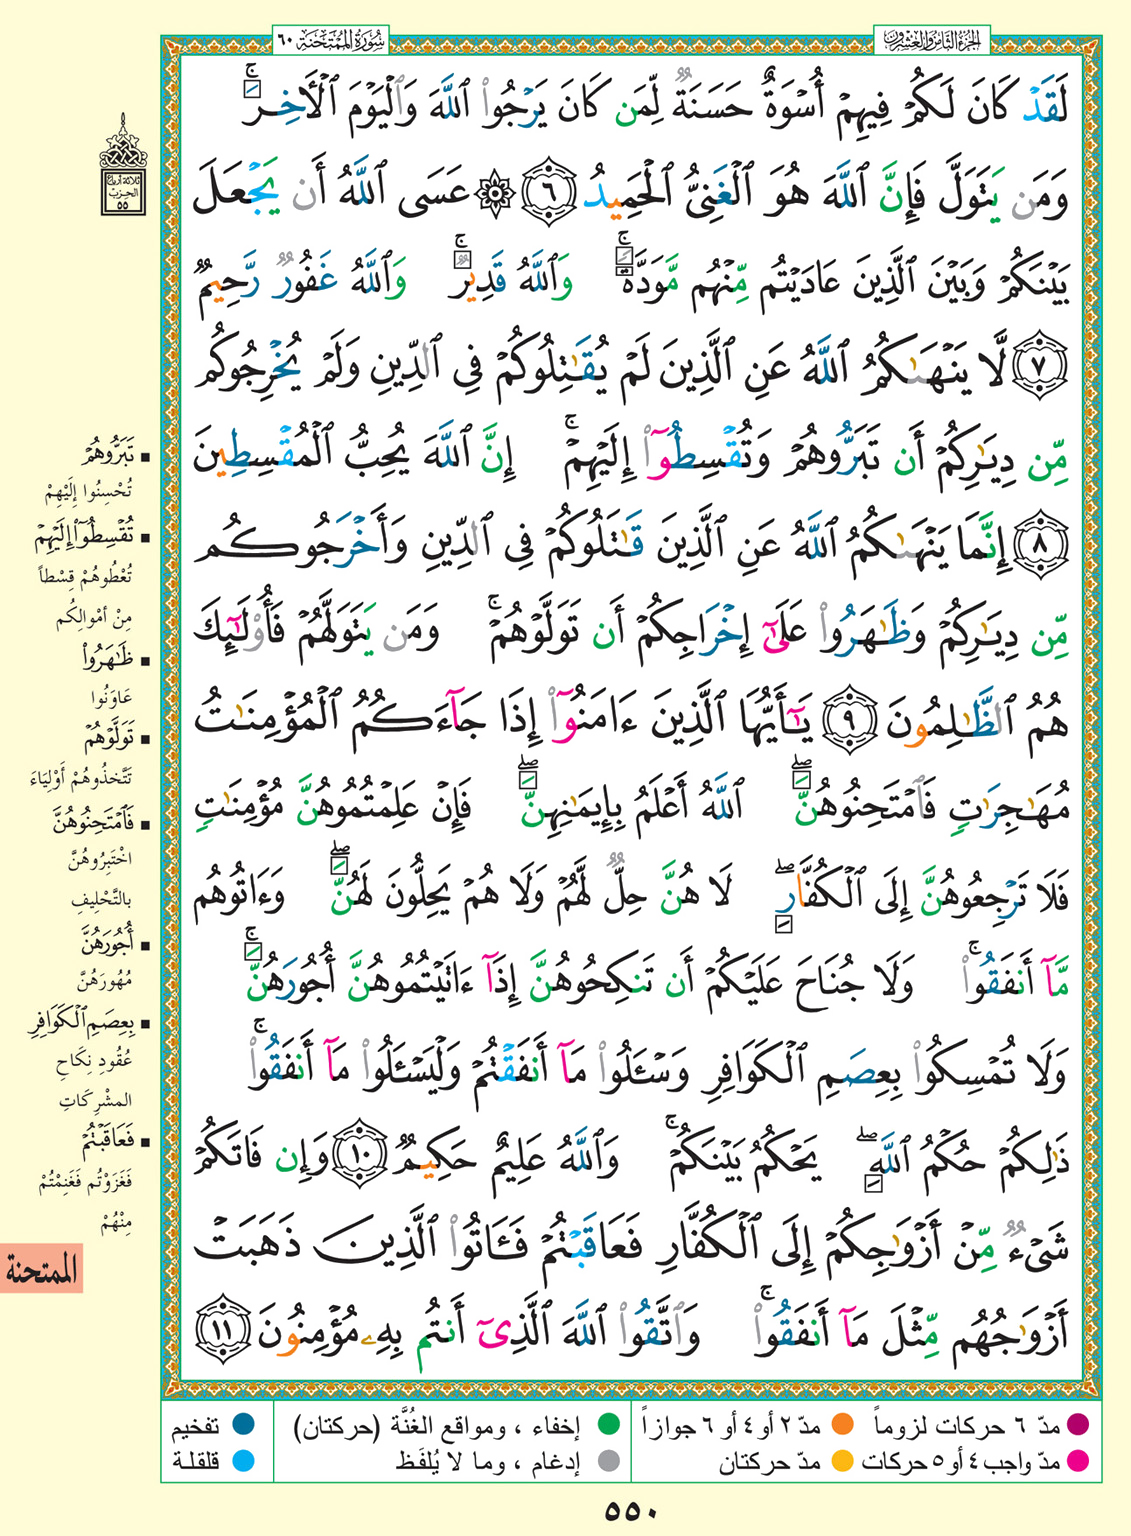 الجزء الثامن والعشرون
سُورَةُ المُمْتَحنَة ٦٠
لَقَدْ كَانَ لَكُمْ فِيهِمْ أُسْوَةٌ حَسَنَةٌ لِّمَن كَانَ يَرْجُوا۟ ٱللَّهَ وَٱلْيَوْمَ ٱلْأَخِرَ ۚ
وَمَن يَتَوَلَّ فَإِنَّ ٱللَّهَ هُوَ ٱلْغَنِىُّ ٱلْحَمِيدُ ٦ ۞ عَسَى ٱللَّهُ أَن يَجْعَلَ
بَيْنَكُمْ وَبَيْنَ ٱلَّذِينَ عَادَيْتُم مِّنْهُم مَّوَدَّةً ۚ وَٱللَّهُ قَدِيرٌ ۚ وَٱللَّهُ غَفُورٌ رَّحِيمٌ
٧ لَّا يَنْهَىٰكُمُ ٱللَّهُ عَنِ ٱلَّذِينَ لَمْ يُقَـٰتِلُوكُمْ فِى ٱلدِّينِ وَلَمْ يُخْرِجُوكُم
مِّن دِيَـٰرِكُمْ أَن تَبَرُّوهُمْ وَتُقْسِطُوٓا۟ إِلَيْهِمْ ۚ إِنَّ ٱللَّهَ يُحِبُّ ٱلْمُقْسِطِينَ
٨ إِنَّمَا يَنْهَىٰكُمُ ٱللَّهُ عَنِ ٱلَّذِينَ قَـٰتَلُوكُمْ فِى ٱلدِّينِ وَأَخْرَجُوكُم
مِّن دِيَـٰرِكُمْ وَظَـٰهَرُوا۟ عَلَىٰٓ إِخْرَاجِكُمْ أَن تَوَلَّوْهُمْ ۚ وَمَن يَتَوَلَّهُمْ فَأُو۟لَـٰٓئِكَ
هُمُ ٱلظَّـٰلِمُونَ ٩ يَـٰٓأَيُّهَا ٱلَّذِينَ ءَامَنُوٓا۟ إِذَا جَآءَكُمُ ٱلْمُؤْمِنَـٰتُ
مُهَـٰجِرَٰتٍ فَٱمْتَحِنُوهُنَّ ۖ ٱللَّهُ أَعْلَمُ بِإِيمَـٰنِهِنَّ ۖ فَإِنْ عَلِمْتُمُوهُنَّ مُؤْمِنَـٰتٍ
فَلَا تَرْجِعُوهُنَّ إِلَى ٱلْكُفَّارِ ۖ لَا هُنَّ حِلٌّ لَّهُمْ وَلَا هُمْ يَحِلُّونَ لَهُنَّ ۖ وَءَاتُوهُم
مَّآ أَنفَقُوا۟ ۚ وَلَا جُنَاحَ عَلَيْكُمْ أَن تَنكِحُوهُنَّ إِذَآ ءَاتَيْتُمُوهُنَّ أُجُورَهُنَّ ۚ
وَلَا تُمْسِكُوا۟ بِعِصَمِ ٱلْكَوَافِرِ وَسْـَٔلُوا۟ مَآ أَنفَقْتُمْ وَلْيَسْـَٔلُوا۟ مَآ أَنفَقُوا۟ ۚ
ذَٰلِكُمْ حُكْمُ ٱللَّهِ ۖ يَحْكُمُ بَيْنَكُمْ ۚ وَٱللَّهُ عَلِيمٌ حَكِيمٌ ١٠ وَإِن فَاتَكُمْ
شَىْءٌ مِّنْ أَزْوَٰجِكُمْ إِلَى ٱلْكُفَّارِ فَعَاقَبْتُمْ فَـَٔاتُوا۟ ٱلَّذِينَ ذَهَبَتْ
أَزْوَٰجُهُم مِّثْلَ مَآ أَنفَقُوا۟ ۚ وَٱتَّقُوا۟ ٱللَّهَ ٱلَّذِىٓ أَنتُم بِهِۦ مُؤْمِنُونَ ١١
ثلاثة أرباع
الحزب
٥٥
▪ تَبَرُّوهُمْ
تُحْسِنُوا إِلَيْهِمْ
▪ تُقْسِطُوٓا۟ إِلَيْهِمْ
تُعْطُوهُمْ قِسْطاً
مِنْ أمْوالِكُم
▪ ظَـٰهَرُوا۟
عَاوَنُوا
▪ تَوَلَّوْهُمْ
تَتَّخذُوهُمْ أَوْلِيَاءَ
▪ فَٱمْتَحِنُوهُنَّ
اخْتَبِرُوهُنَّ
بالتَّحْلِيفِ
▪ أُجُورَهُنَّ
مُهُورَهُنَّ
▪ بِعِصَمِ ٱلْكَوَافِرِ
عُقُودِ نِكَاحِ
المشْرِكَاتِ
▪ فَعَاقَبْتُمْ
فَغَزَوْتُم فَغَنِمْتُمْ
مِنْهُمْ
الممتحنة
مدّ ٦ حركات لزوماً مدّ ٢ أو ٤ أو ٦ جوازاً إخفاء ، ومواقع الغُنَّة (حركتان) تفخيم
مدّ واجب ٤ أو ٥ حركات مدّ حركتان إدغام ، وما لا يُلفَظ قلقلة
٥٥٠